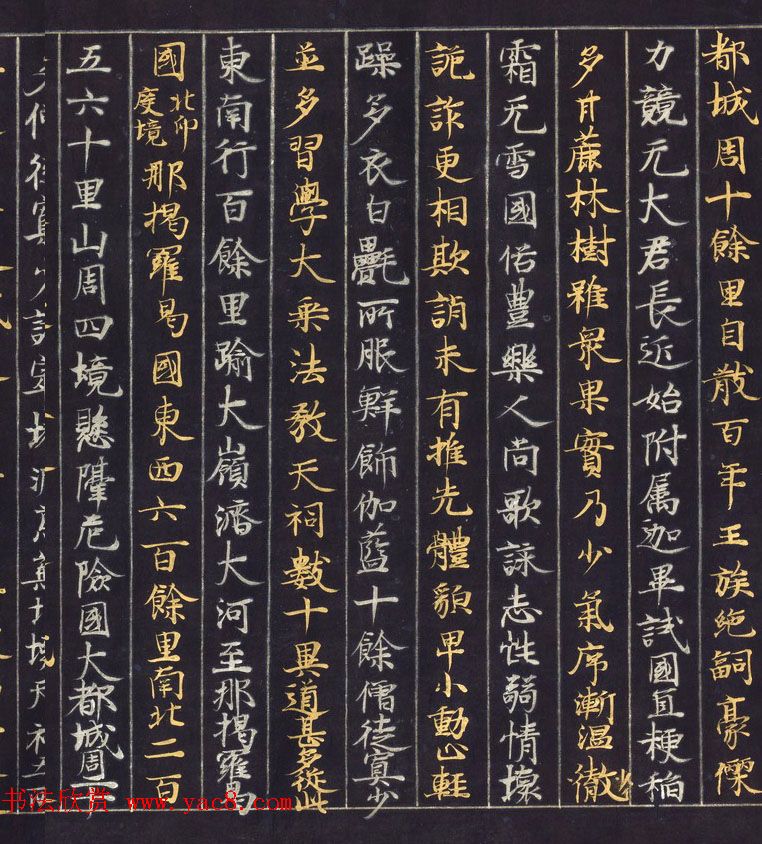 都城周十餘里自數百年王族絶嗣豪傑
力競无大君長近始附属迦畢試國宜粳稲
多甘蔗林樹雖衆果實乃少氣序漸温微
霜无雪國俗豐樂人尚歌詠志性弱情壞
詭詐更相欺誚未有推先體貌卑小動止軽
躁多衣白㲲所服鮮飾伽藍十餘僧徒寡少
並多習學大乗法教天祠數十異道甚多從此
東南行百餘里踰大嶺濟大河至那揭羅曷
國北印度境那揭羅曷國東西六百餘里南北二百
五六十里山周四境懸隔危險國大都城周
书法欣赏 www.yac8.com